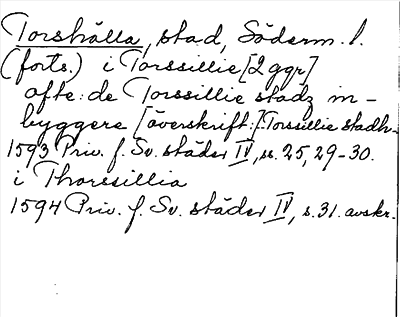 Torshälla, stad, Söderm. l.
(forts.) i Torssillie [2 ggr]
afte: de Torssillie stadz in-
byggere [överskrift:] Torssillie stadh
1593 Priv. f. Sv. städer IV, ss. 25, 29-30.
i Thorssillia
1594 Priv. f. Sv. städer IV, s. 31. avskr.